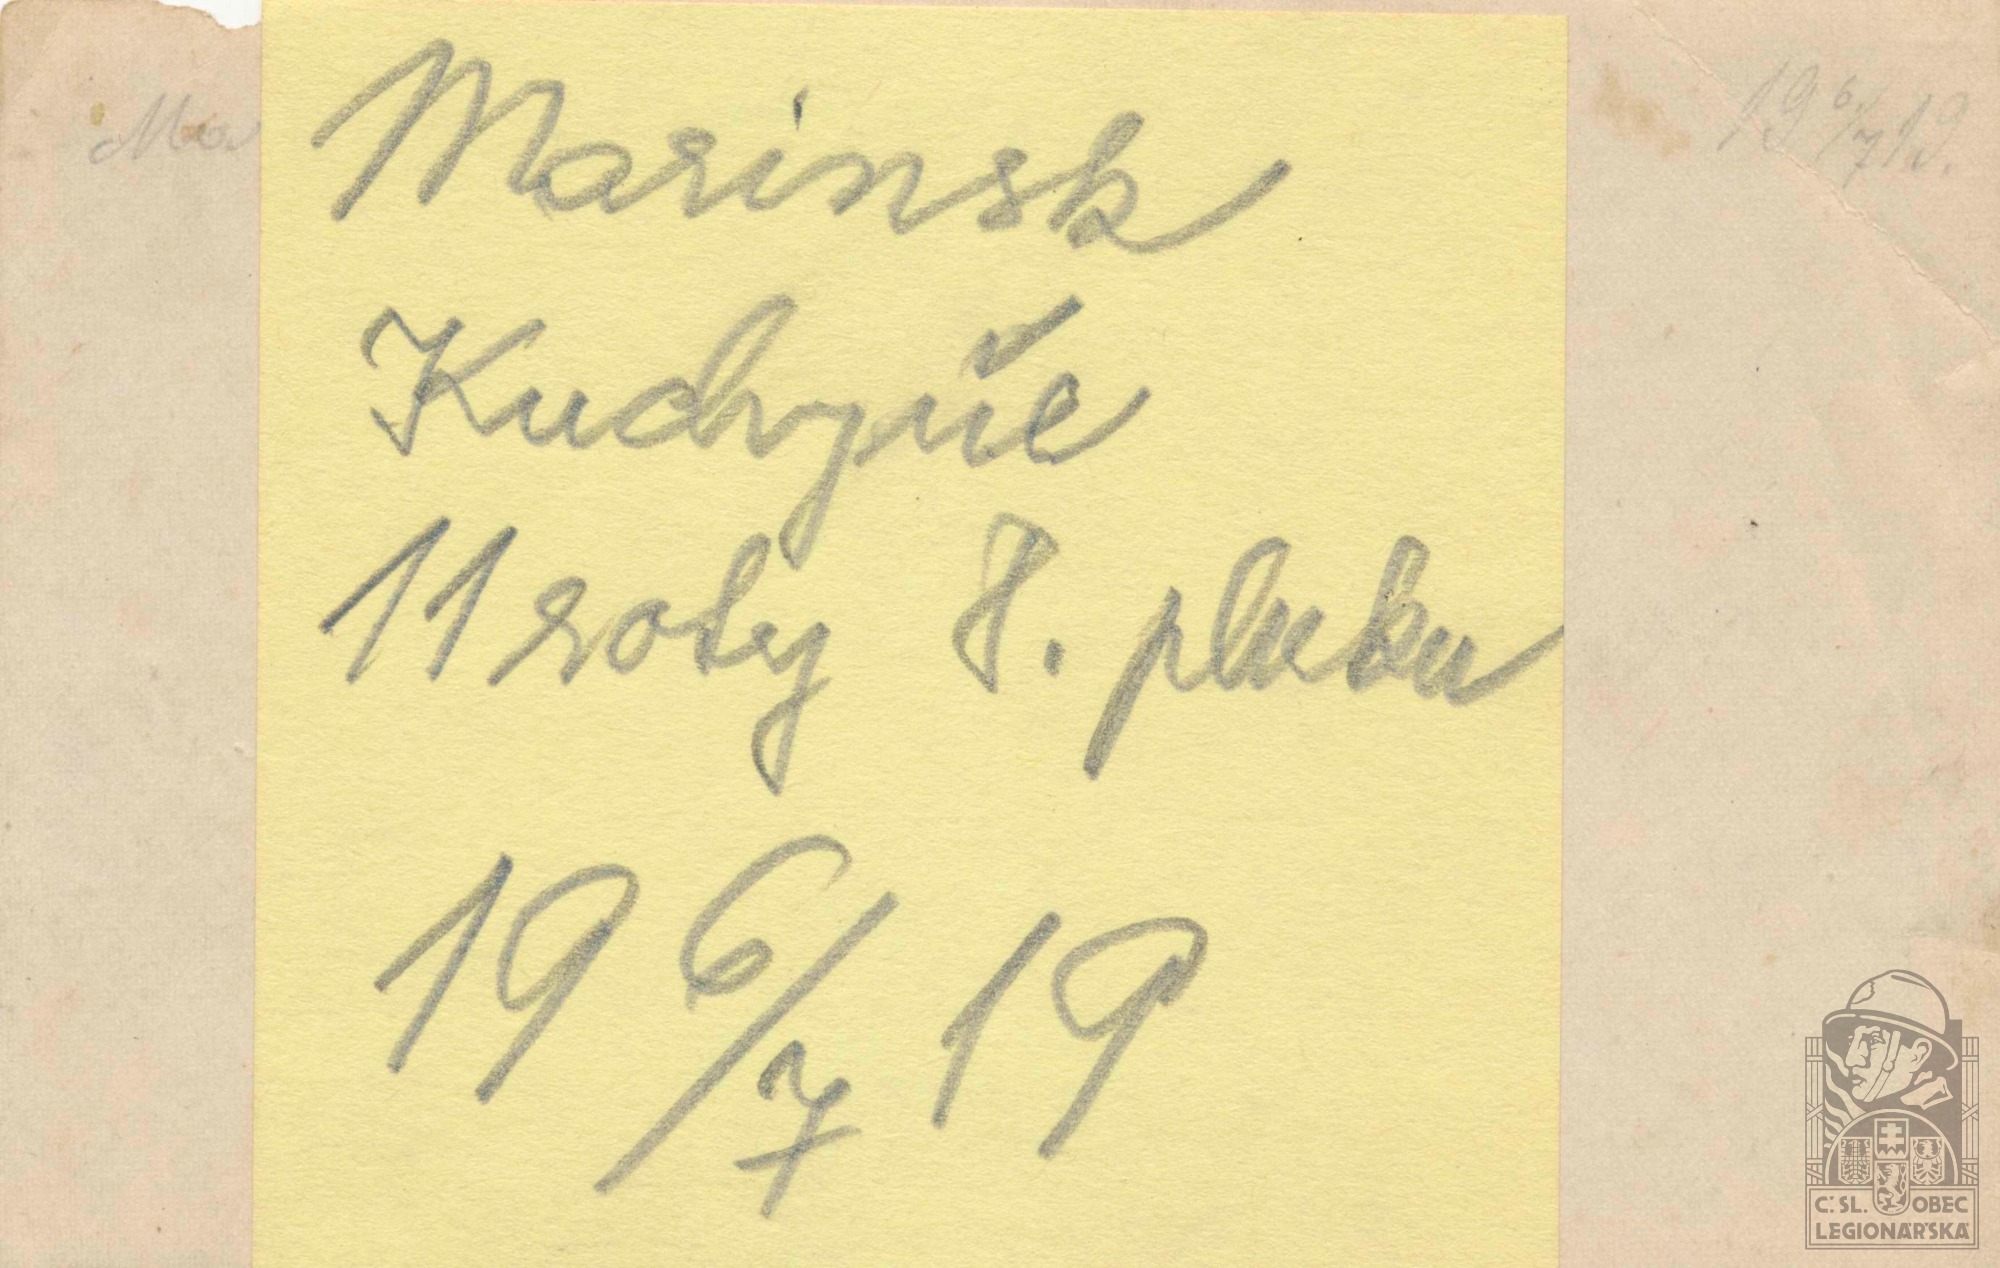 Ma
19 6/7 19.
Marinsk
Kuchyňe
11 roty 8. pluku
19 6/7 19
Č.SL. OBEC
LEGIONÁŘSKÁ